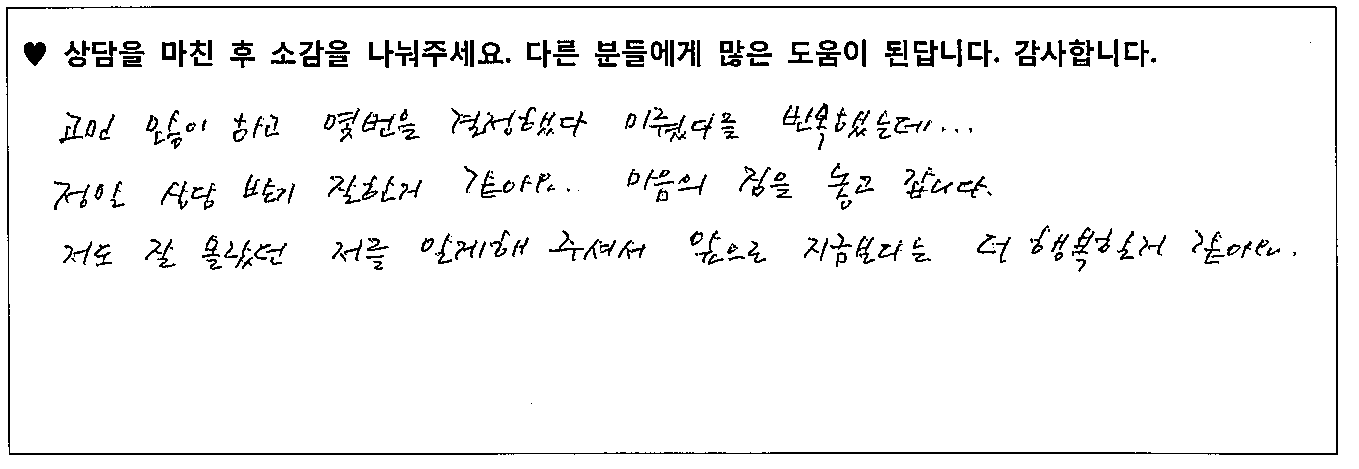 ♥ 상담을 마친 후 소감을 나눠주세요. 다른 분들에게 많은 도움이 된답니다. 감사합니다.
고민 많이 하고 몇번을 결정했다 미뤘다를 반복했는데...
정말 상담 받기 잘한거 같아요.. 마음의 짐을 놓고 갑니다.
저도 잘 몰랐던 저를 알게해 주셔서 앞으로 지금보다는 더 행복할거 같아요.